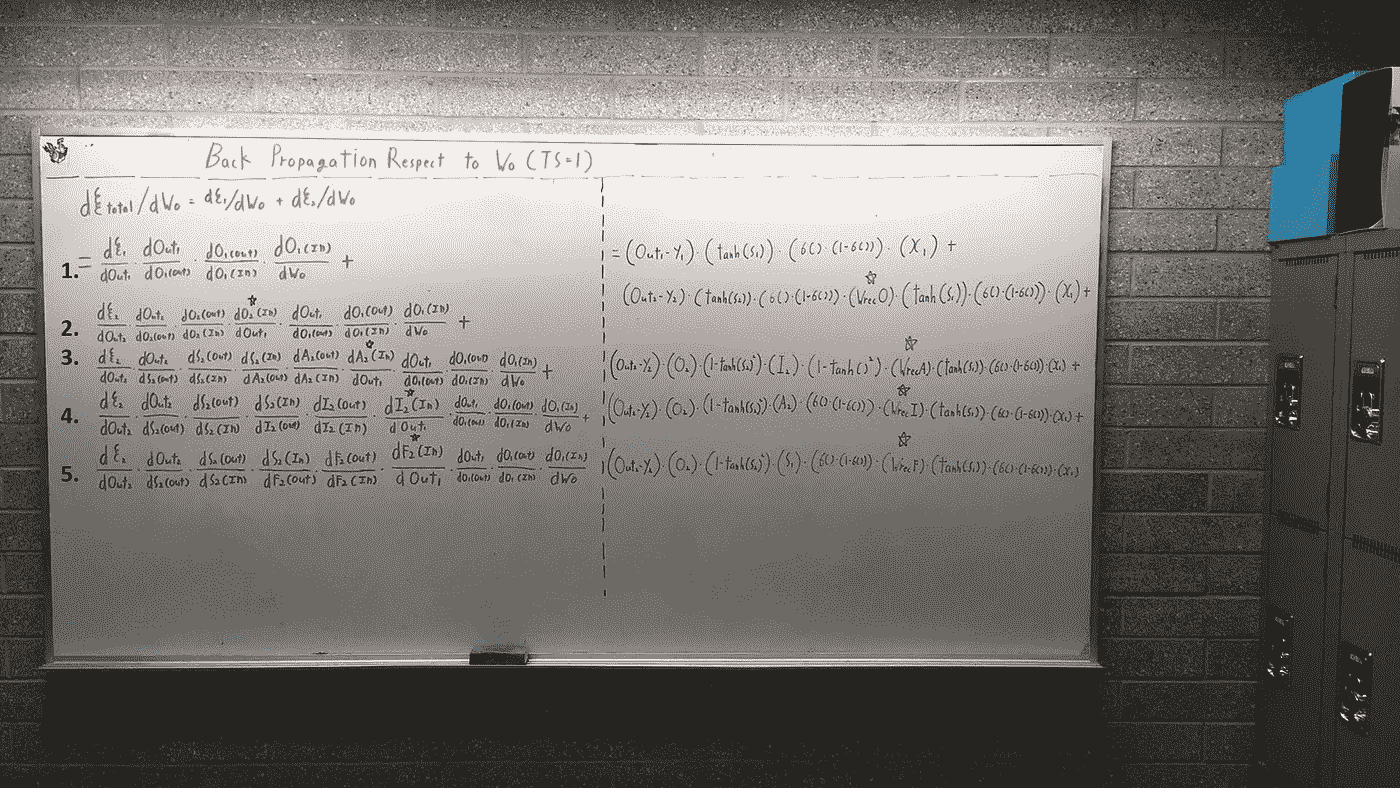 Back Propagation Respect to Wo (TS=1)
dξtotal/dWo = dξ₁/dWo + dξ₂/dWo
1. = dξ₁/dOut₁ · dOut₁/dO₁(out) · dO₁(out)/dO₁(In) · dO₁(In)/dWo +
2. dξ₂/dOut₂ · dOut₂/dO₂(out) · dO₂(out)/dO₂(In) · ☆dO₂(In)/dOut₁ · dOut₁/dO₁(out) · dO₁(out)/dO₁(In) · dO₁(In)/dWo +
3. dξ₂/dOut₂ · dOut₂/dS₂(out) · dS₂(out)/dS₂(In) · dS₂(In)/dA₂(out) · dA₂(out)/dA₂(In) · ☆dA₂(In)/dOut₁ · dOut₁/dO₁(out) · dO₁(out)/dO₁(In) · dO₁(In)/dWo +
4. dξ₂/dOut₂ · dOut₂/dS₂(out) · dS₂(out)/dS₂(In) · dS₂(In)/dI₂(out) · dI₂(out)/dI₂(In) · ☆dI₂(In)/dOut₁ · dOut₁/dO₁(out) · dO₁(out)/dO₁(In) · dO₁(In)/dWo +
5. dξ₂/dOut₂ · dOut₂/dS₂(out) · dS₂(out)/dS₂(In) · dS₂(In)/dF₂(out) · dF₂(out)/dF₂(In) · ☆dF₂(In)/dOut₁ · dOut₁/dO₁(out) · dO₁(out)/dO₁(In) · dO₁(In)/dWo
= (Out₁-Y₁) · (tanh(S₁)) · (6() · (1-6())) · (X₁) +
(Out₂-Y₂) · (tanh(S₂)) · (6() · (1-6())) · ☆(WrecO) · (tanh(S₁)) · (6() · (1-6())) · (X₁) +
(Out₂-Y₂) · (O₂) · (1-tanh(S₂)²) · (I₂) · (1-tanh()²) · ☆(WrecA) · (tanh(S₁)) · (6() · (1-6())) · (X₁) +
(Out₂-Y₂) · (O₂) · (1-tanh(S₂)²) · (A₂) · (6() · (1-6())) · ☆(WrecI) · (tanh(S₁)) · (6() · (1-6())) · (X₁) +
(Out₂-Y₂) · (O₂) · (1-tanh(S₂)²) · (S₁) · (6() · (1-6())) · ☆(WrecF) · (tanh(S₁)) · (6() · (1-6())) · (X₁)